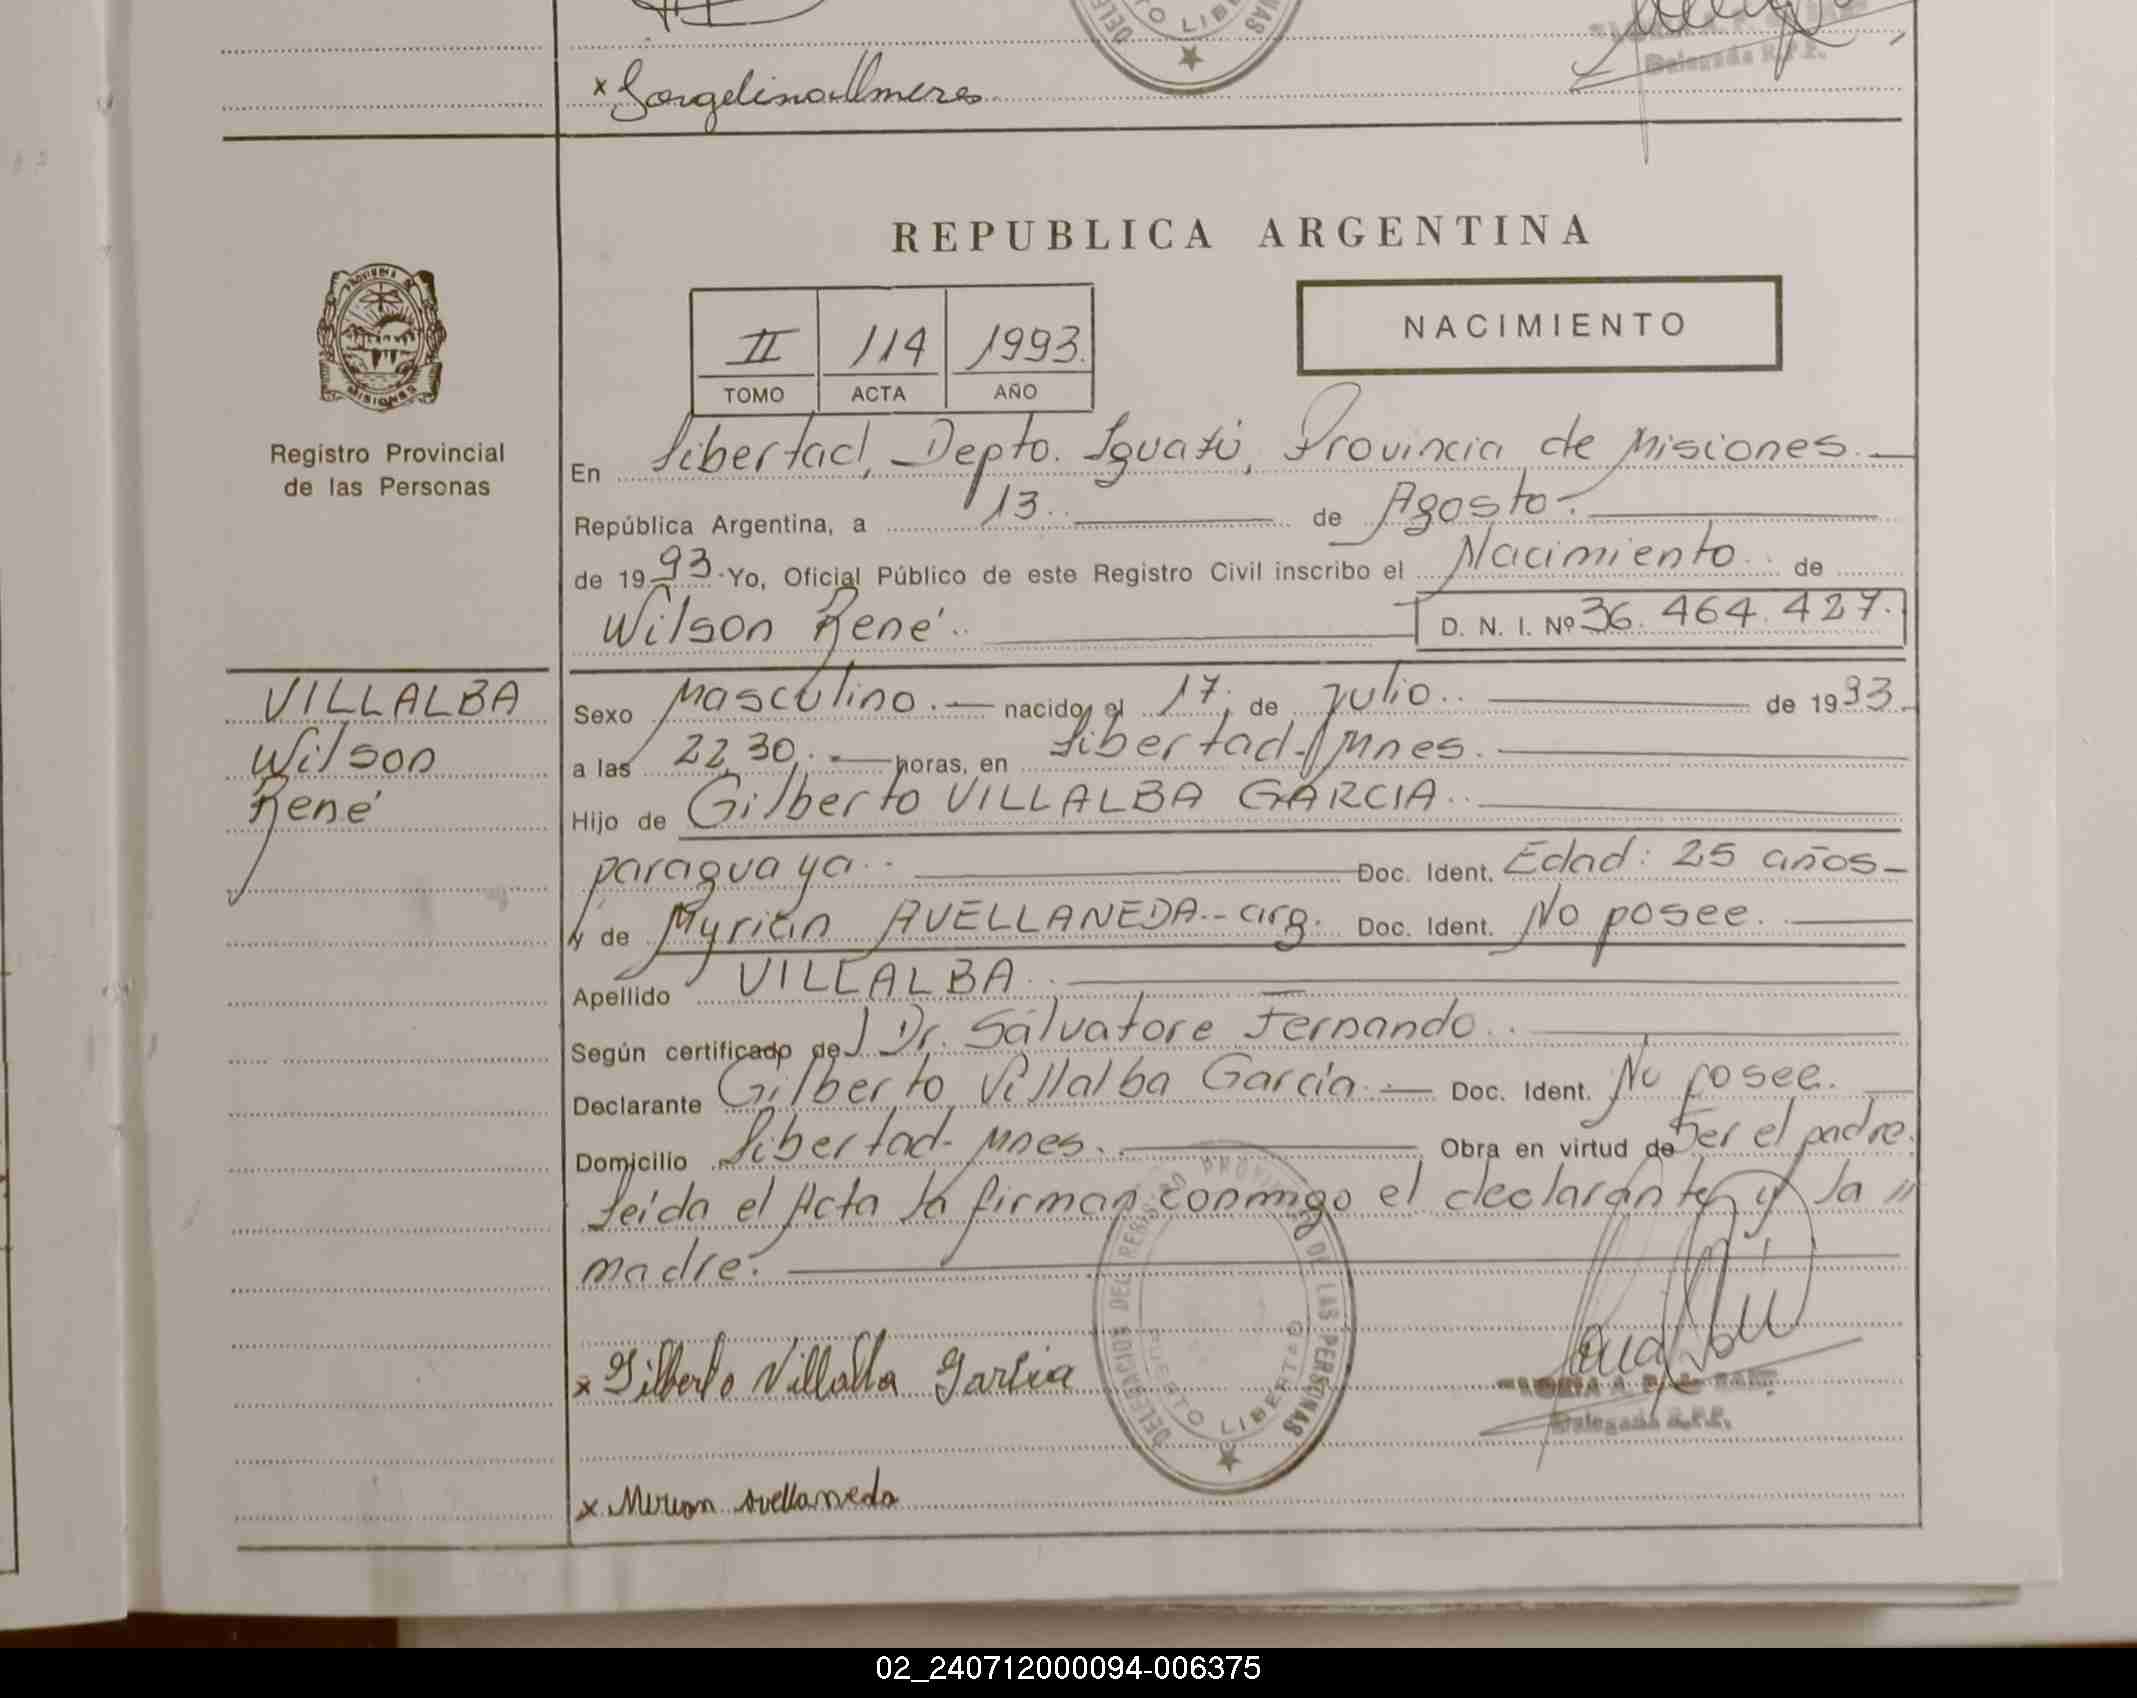 x Jorgelina Almeres
DELE
TO LIB
NAS
Delegada R.P.P.
REPUBLICA ARGENTINA
PROVINCIA
MISIONES
II 114 1993.
TOMO ACTA AÑO
NACIMIENTO
Registro Provincial
de las Personas
En Libertad, Depto. Iguazú, Provincia de Misiones.
República Argentina, a 13 de Agosto.
de 1993. Yo, Oficial Público de este Registro Civil inscribo el Nacimiento de
Wilson René D. N. I. Nº 36.464.427.
VILLALBA
Wilson
René
Sexo Masculino. nacido el 17 de Julio de 1993.
a las 22,30. horas, en Libertad - Mnes.
Hijo de Gilberto VILLALBA GARCIA
paraguaya Doc. Ident. Edad: 25 años
y de Myrian AVELLANEDA - arg. Doc. Ident. No posee.
Apellido VILLALBA
Según certificado de Dr. Salvatore Fernando
Declarante Gilberto Villalba García Doc. Ident. No posee.
Domicilio Libertad - Mnes. Obra en virtud de Ser el padre.
Leída el Acta la firman conmigo el declarante y la //
madre.
x Gilberto Villalba Garcia
DELEGACION DEL REGISTRO PROVINCIAL DE LAS PERSONAS
PUERTO LIBERTAD
Delegada R.P.P.
x Mirian Avellaneda
02_240712000094-006375